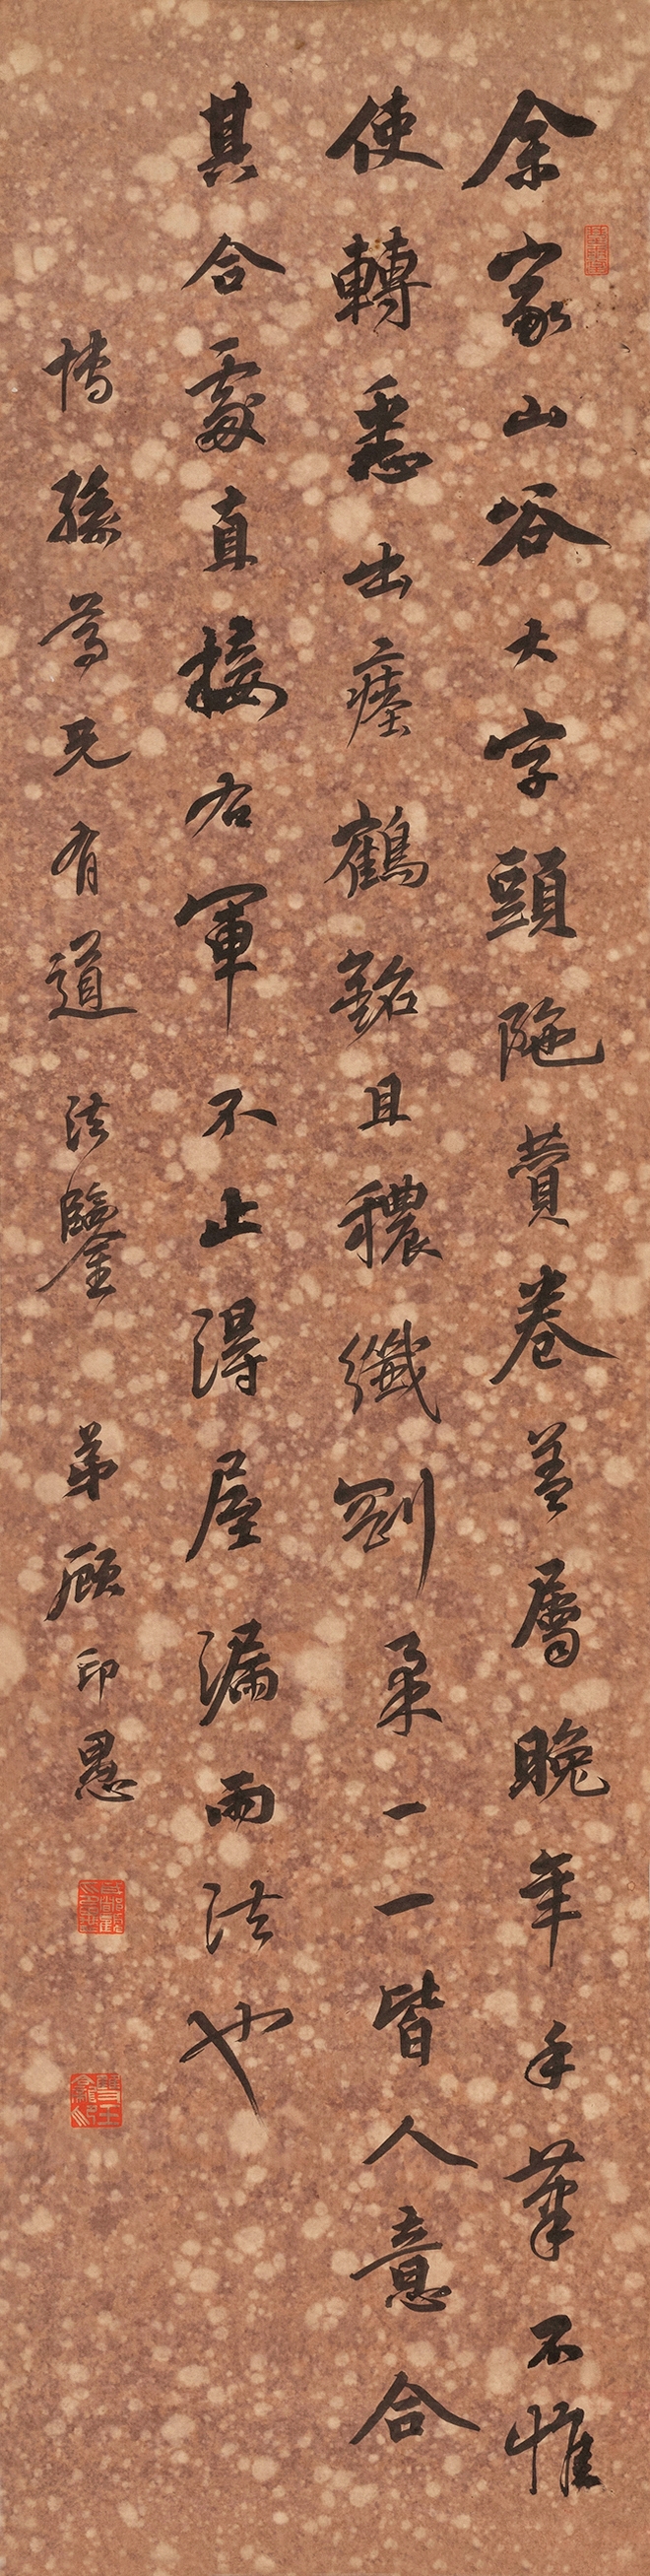 余家山谷大字頭陁贊卷蓋屬晚年手筆不惟
使轉悉出瘞鶴銘且穠纖剛柔一一皆人意合
其合處直接右軍不止得屋漏雨法也
博孫尊兄有道法鑒 弟顧印愚